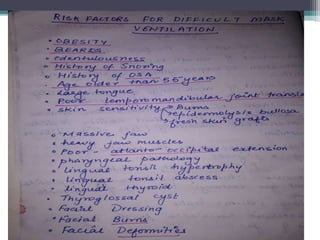 RISK FACTORS FOR DIFFICULT MASK
VENTILATION
• OBESITY
• BEARDS
• Edentulousness
• History of Snoring
o History of OSA
• Age older than 55 years
• Large tongue
• Poor temporomandibular joint transla
• Skin sensitivity → Burns
→ epidermolysis bullosa
→ fresh skin grafts
o Massive jaw
• heavy jaw muscles
• Poor atlanto-occipital extension
• pharyngeal pathology
• lingual tonsil hypertrophy
• lingual tonsil abscess
• lingual thyroid
• Thyroglossal cyst
• Facial Dressing
• Facial Burns
• Facial Deformities